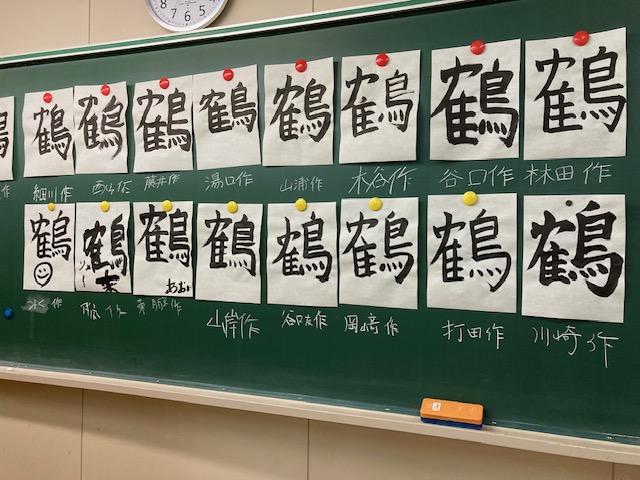 鶴 鶴 鶴 鶴 鶴 鶴 鶴 鶴
作 細川作 西山作 藤井作 湯口作 山浦作 木谷作 谷口作 林田作
鶴 鶴 鶴 鶴 鶴 鶴 鶴 鶴
あおい
作 作 作 山岸作 作 岡崎作 打田作 川崎作
7 6 5